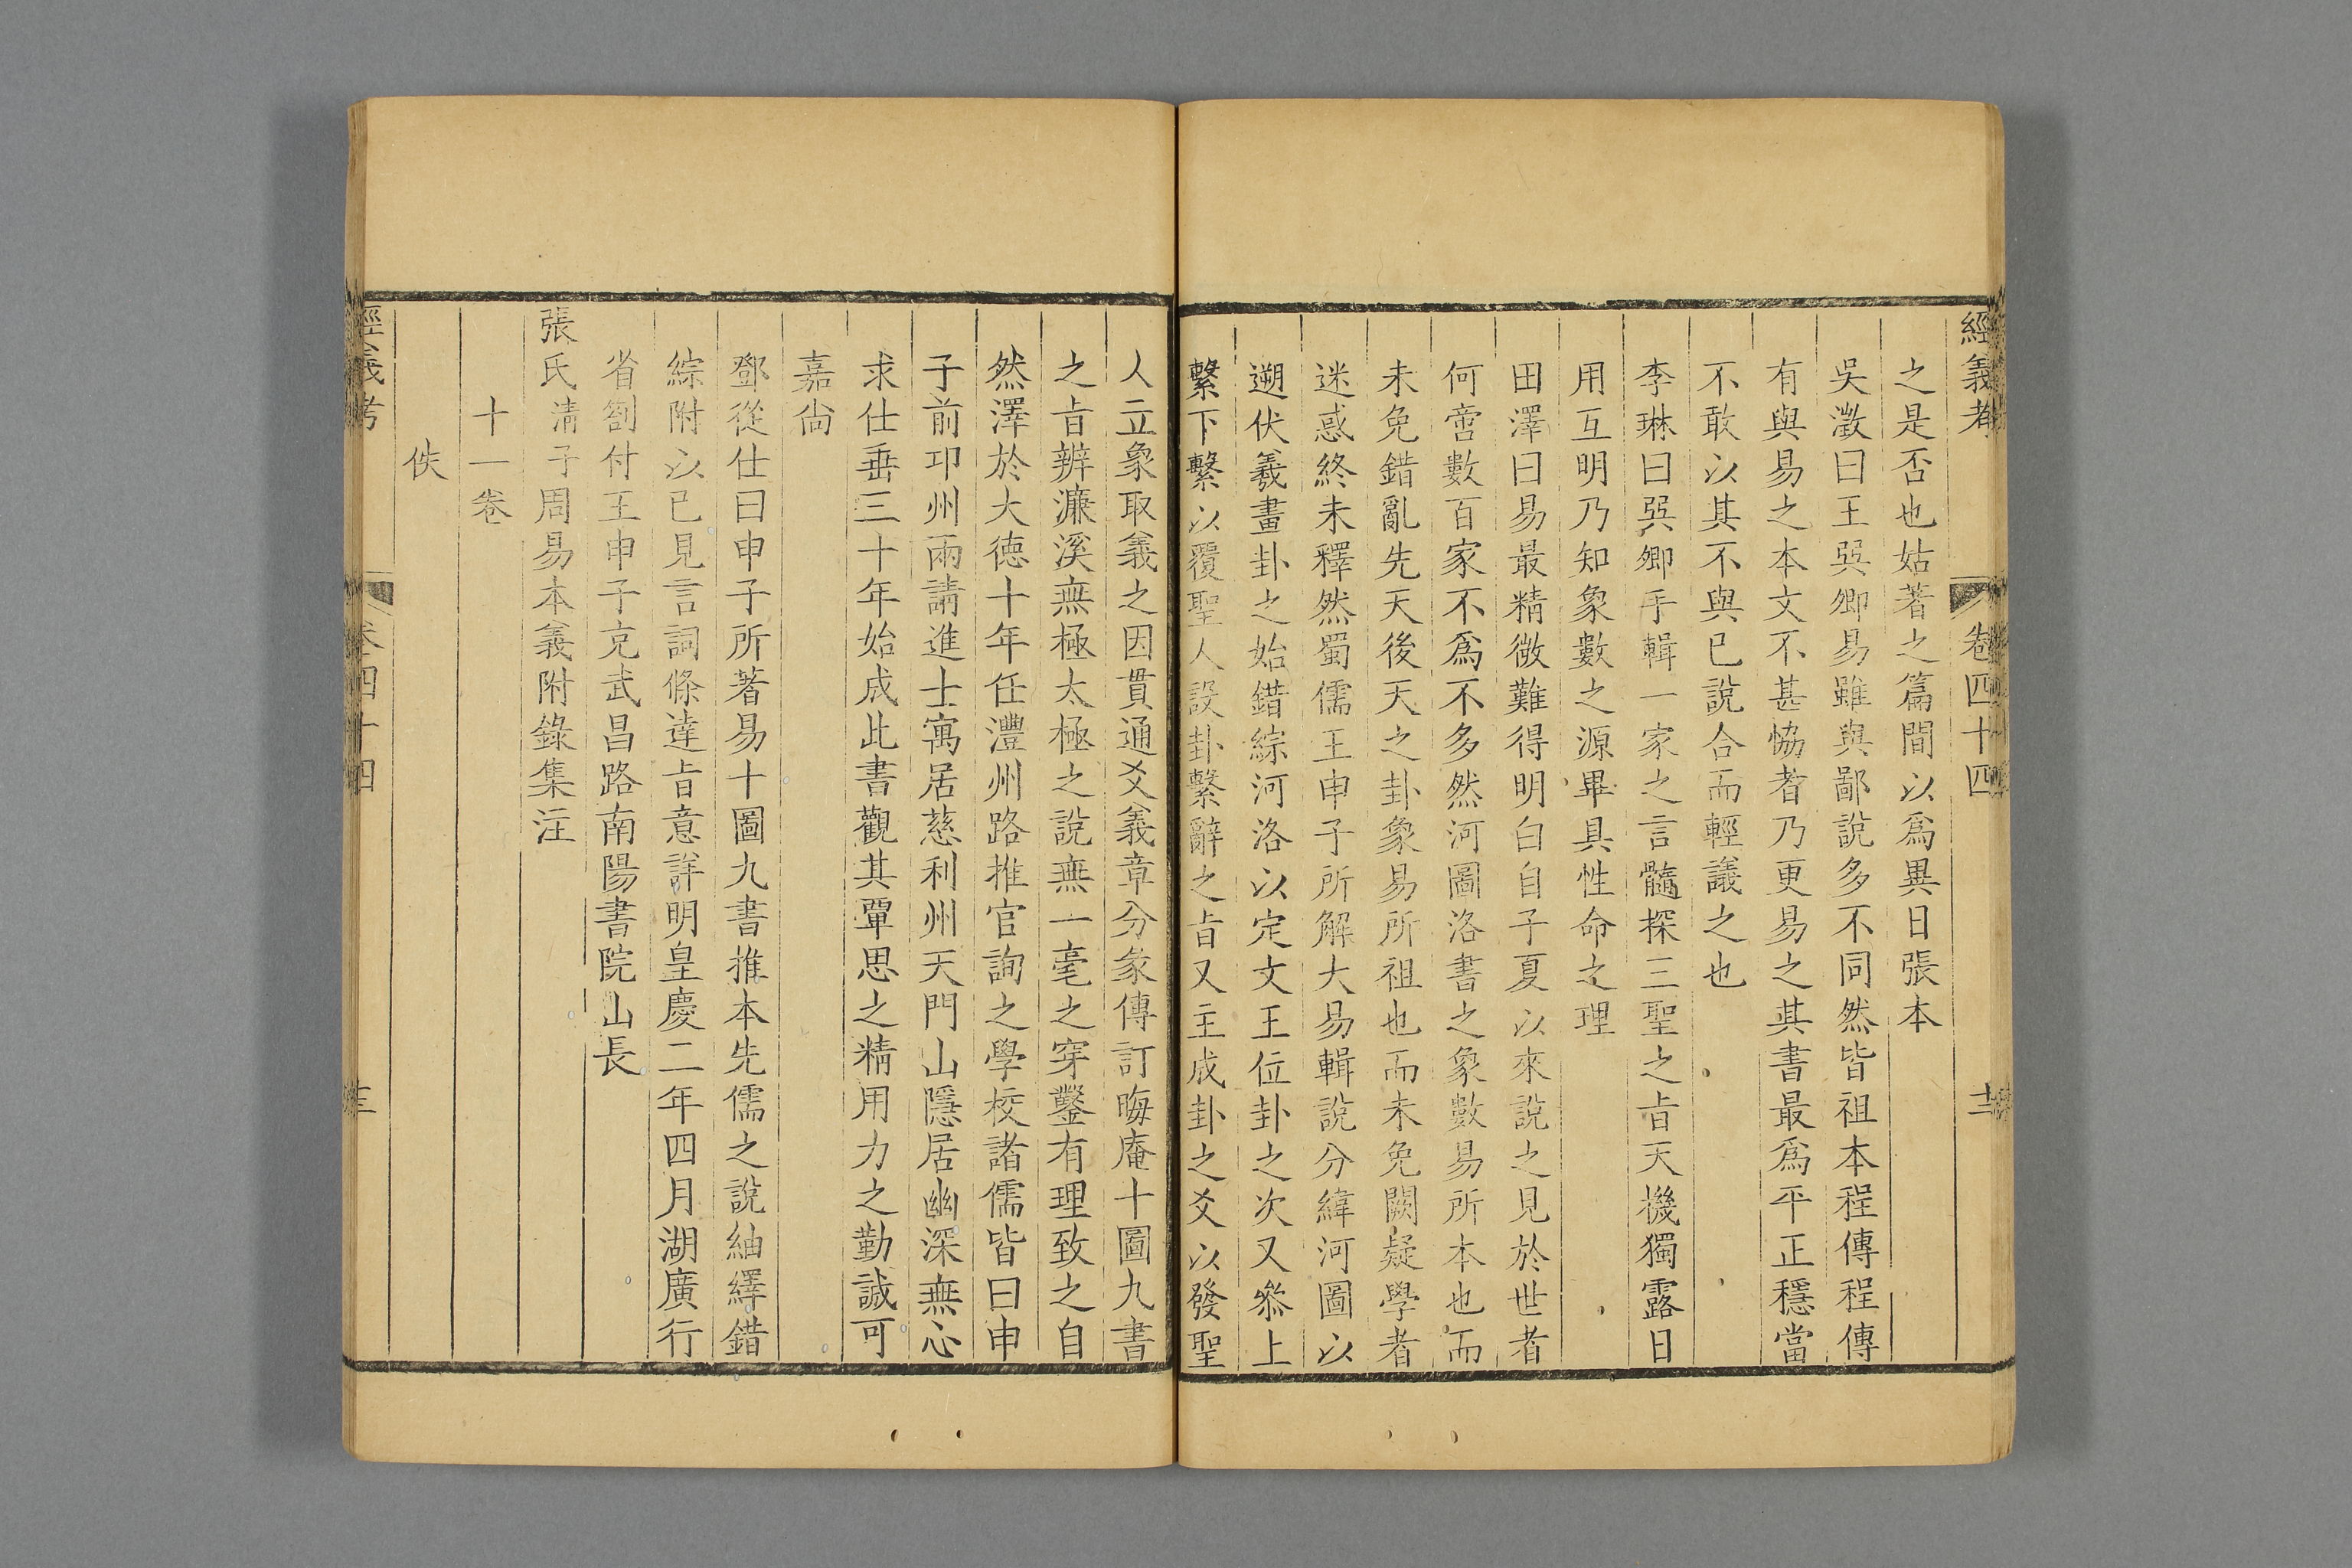 經義考 卷四十四 十二
之是否也姑著之篇間以爲異日張本
吳澂曰王巽卿易雖與鄙說多不同然皆祖本程傳程傳
有與易之本文不甚恊者乃更易之其書最爲平正穩當
不敢以其不與已說合而輕議之也
李琳曰巽卿手輯一家之言髓探三聖之㫖天機獨露日
用互明乃知象數之源畢具性命之理
田澤曰易最精微難得明白自子夏以來說之見於世者
何啻數百家不爲不多然河圖洛書之象數易所本也而
未免錯亂先天後天之卦象易所祖也而未免闕疑學者
迷惑終未釋然蜀儒王申子所解大易輯說分緯河圖以
遡伏羲畫卦之始錯綜河洛以定文王位卦之次又叅上
繫下繫以覆聖人設卦繫辭之㫖又主成卦之爻以發聖
人立象取義之因貫通爻義章分彖傳訂晦庵十圖九書
之㫖辨濂溪無極太極之說無一毫之穿鑿有理致之自
然澤於大德十年任澧州路推官詢之學校諸儒皆曰申
子前卭州兩請進士寓居慈利州天門山隱居幽深無心
求仕垂三十年始成此書觀其覃思之精用力之勤誠可
嘉尙
鄧從仕曰申子所著易十圖九書推本先儒之說紬繹錯
綜附以已見言詞條達㫖意詳明皇慶二年四月湖廣行
省劄付王申子充武昌路南陽書院山長
張氏淸子周易本義附錄集注
十一卷
佚
經義考 卷四十四